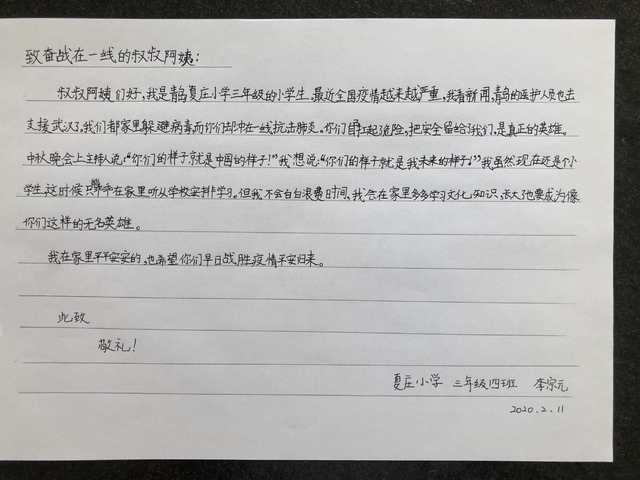 致奋战在一线的叔叔阿姨：
叔叔阿姨们好，我是青岛夏庄小学三年级的小学生。最近全国疫情越来越严重，我看新闻，青岛的医护人员也去
支援武汉了。我们都家里躲避病毒而你们却冲在一线抗击肺炎。你们自己扛起危险，把安全留给了我们，是真正的英雄。
中秋晚会上主持人说：“你们的样子就是中国的样子！”我想说：“你们的样子就是我未来的样子！”我虽然现在还是个小
学生，这时候只能乖乖在家里听从学校安排学习。但我不会白白浪费时间，我会在家里多多学习文化知识，长大了也要成为像
你们这样的无名英雄。
我在家里平平安安的，也希望你们早日战胜疫情平安归来。
此致
敬礼！
夏庄小学 三年级四班 李宗元
2020.2.11